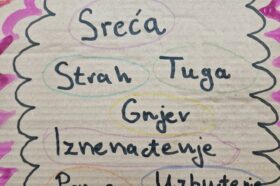 Sreća
Strah Tuga
Gnjev
Iznenađenje